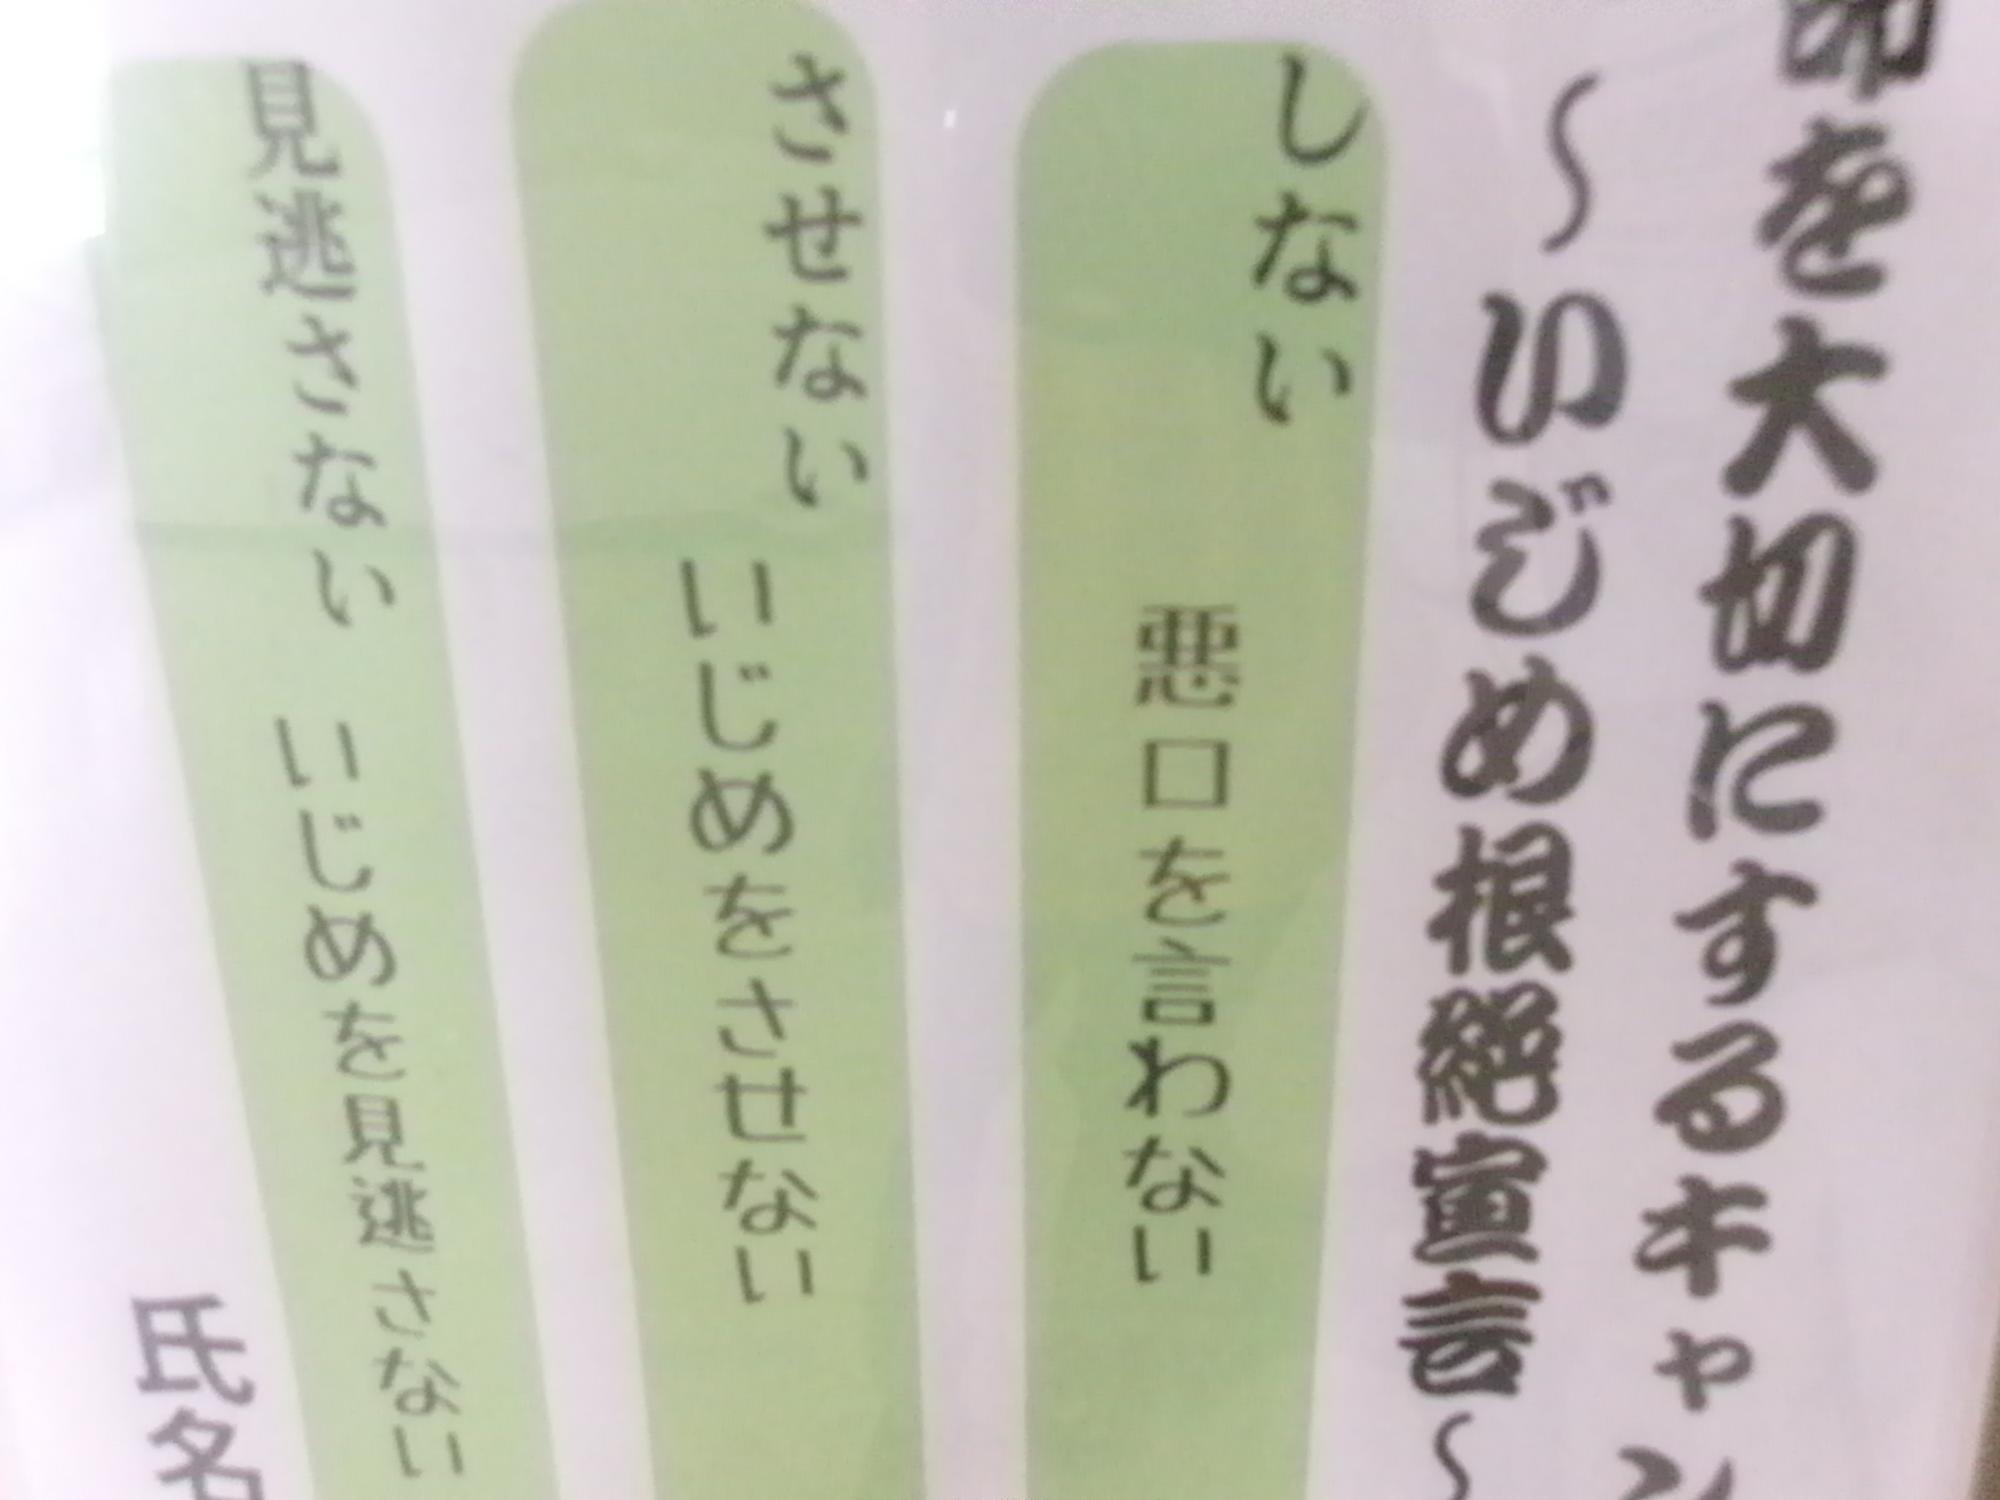 命を大切にするキャン
～いじめ根絶宣言～
しない 悪口を言わない
させない いじめをさせない
見逃さない いじめを見逃さない
氏名